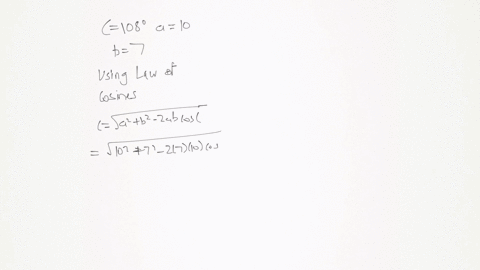 C=108° a=10
b=7
Using Law of
Cosines
C=√a²+b²-2ab cos C
=√10²+7²-2(7)(10) cos